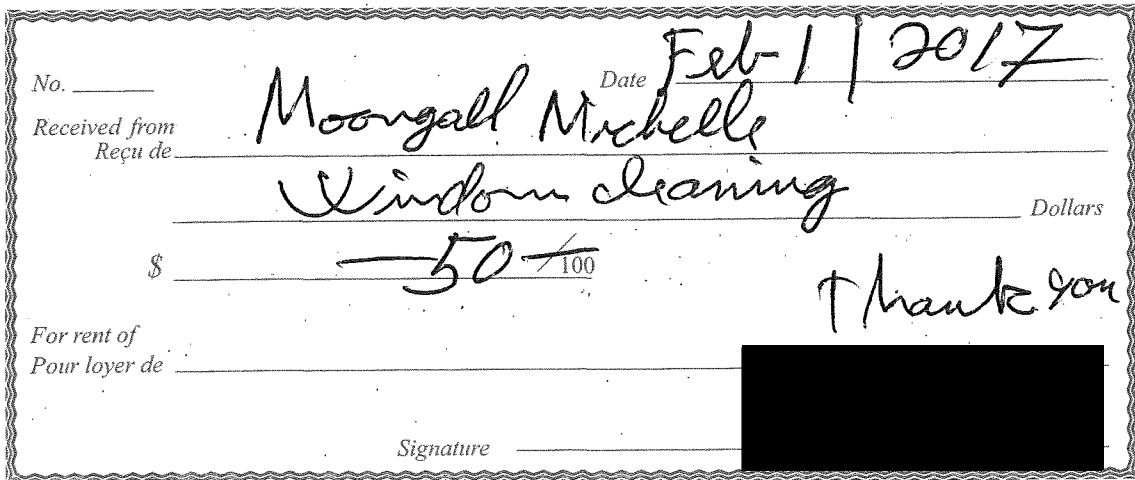 No. Date Feb 1 | 2017
Received from
Reçu de Moongall Michelle
Window cleaning Dollars
$ —50—/100
Thank you
For rent of
Pour loyer de
Signature